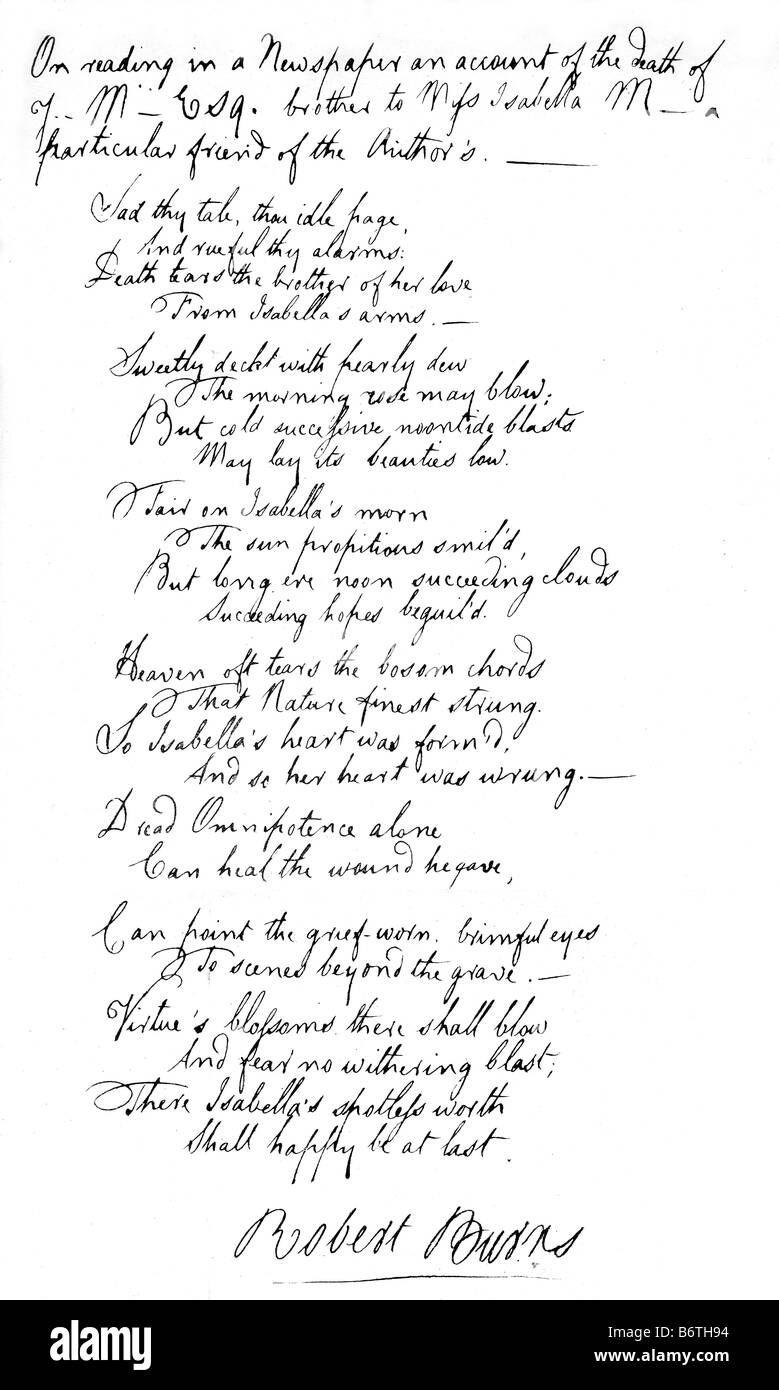 On reading in a Newspaper an account of the death of
J.. M– Esq. brother to Miss Isabella M— a
particular friend of the Author's. ——
Sad thy tale, thou idle page,
And rueful thy alarms:
Death tears the brother of her love
From Isabella's arms. —
Sweetly deckt with pearly dew
The morning rose may blow;
But cold successive noontide blasts
May lay its beauties low.
Fair on Isabella's morn
The sun propitious smil'd,
But long ere noon succeeding clouds
Succeeding hopes beguil'd.
Heaven oft tears the bosom chords
That Nature finest strung.
So Isabella's heart was form'd,
And so her heart was wrung. —
Dread Omnipotence alone
Can heal the wound he gave,
Can point the grief-worn. brimful eyes
To scenes beyond the grave. —
Virtue's blossoms there shall blow
And fear no withering blast;
There Isabella's spotless worth
Shall happy be at last.
Robert Burns
alamy
Image ID: B6TH94
www.alamy.com